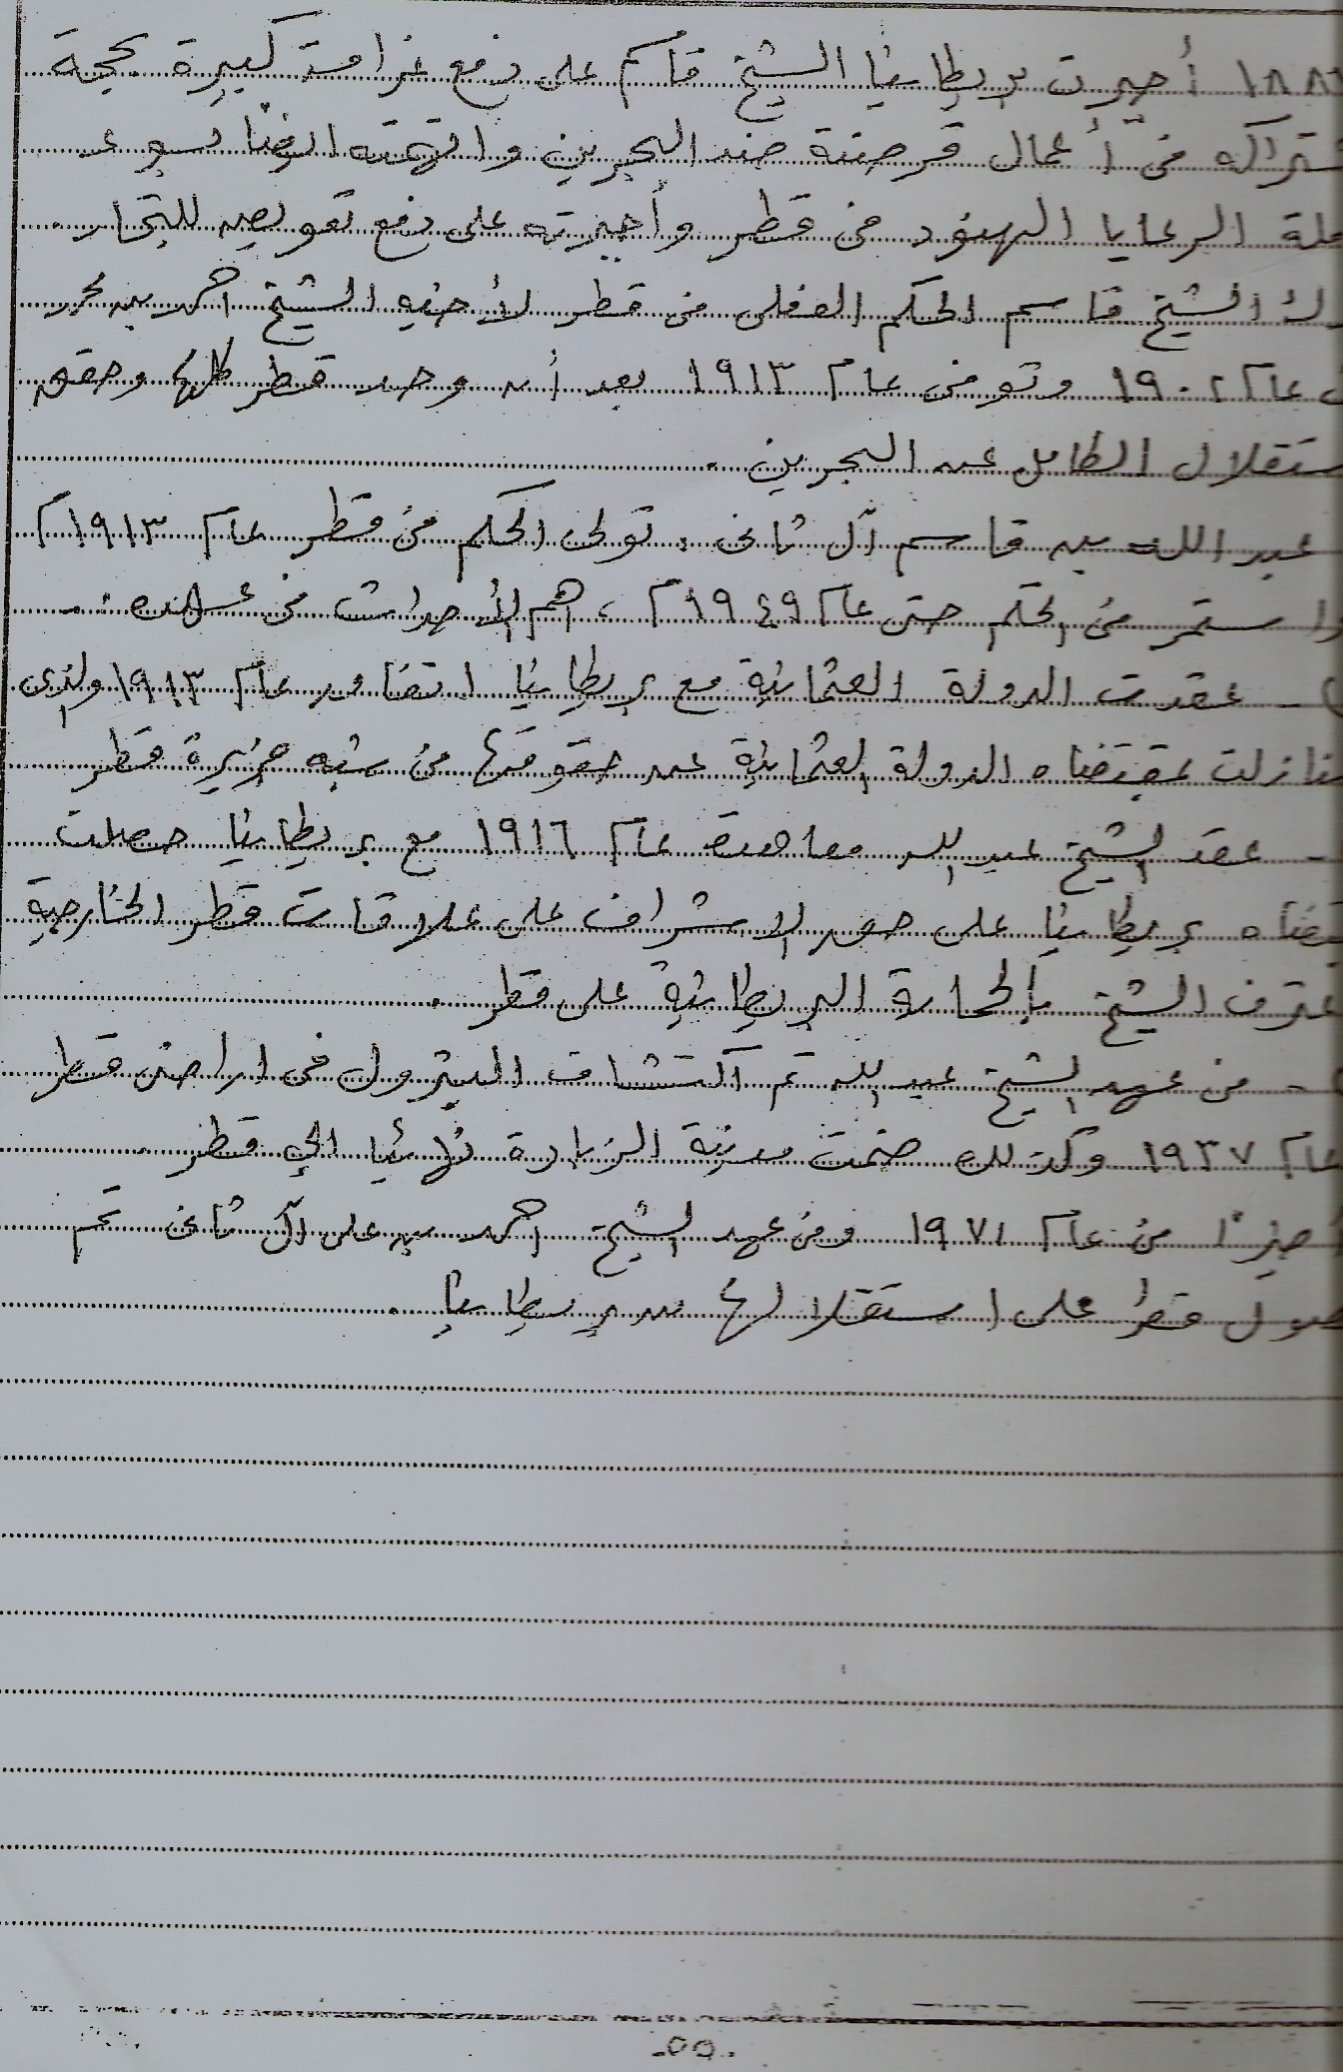 ١٨٨٢ أجبرت بريطانيا الشيخ قاسم على دفع غرامة كبيرة بحجة
شتراكه فى أعمال قرصنة ضد البحرين واتهمته ايضا بسوء
ملة الرعايا الهنود فى قطر وأجبرته على دفع تعويض للتجار .
رك الشيخ قاسم الحكم الفعلى فى قطر لأخيه الشيخ احمد بن محمد
عام ١٩٠٢ وتوفى عام ١٩١٣ بعد أن وحد قطر كلها وحقق
ستقلال الكامل عن البحرين .
عبد الله بن قاسم آل ثانى . تولى الحكم فى قطر عام ١٩١٣م
واستمر فى الحكم حتى عام ١٩٤٩م ، اهم الأحداث فى عهده ..
- عقدت الدولة العثمانية مع بريطانيا اتفاق عام ١٩١٣ والذى
نازلت بمقتضاه الدولة العثمانية عن حقوقها فى شبه جزيرة قطر
- عقد الشيخ عبد الله معاهدة عام ١٩١٦ مع بريطانيا حصلت
تضاه بريطانيا على حق الاشراف على علاقات قطر الخارجية
عترف الشيخ بالحماية البريطانية على قطر .
- فى عهد الشيخ عبد الله تم اكتشاف البترول فى اراضى قطر
عام ١٩٣٧ وكذلك ضمت مدينة الزبارة نهائيا الي قطر .
خيرًا فى عام ١٩٧١ وفى عهد الشيخ احمد بن على آل ثانى تم
صول قطر على استقلالها من بريطانيا .
-٥٥-